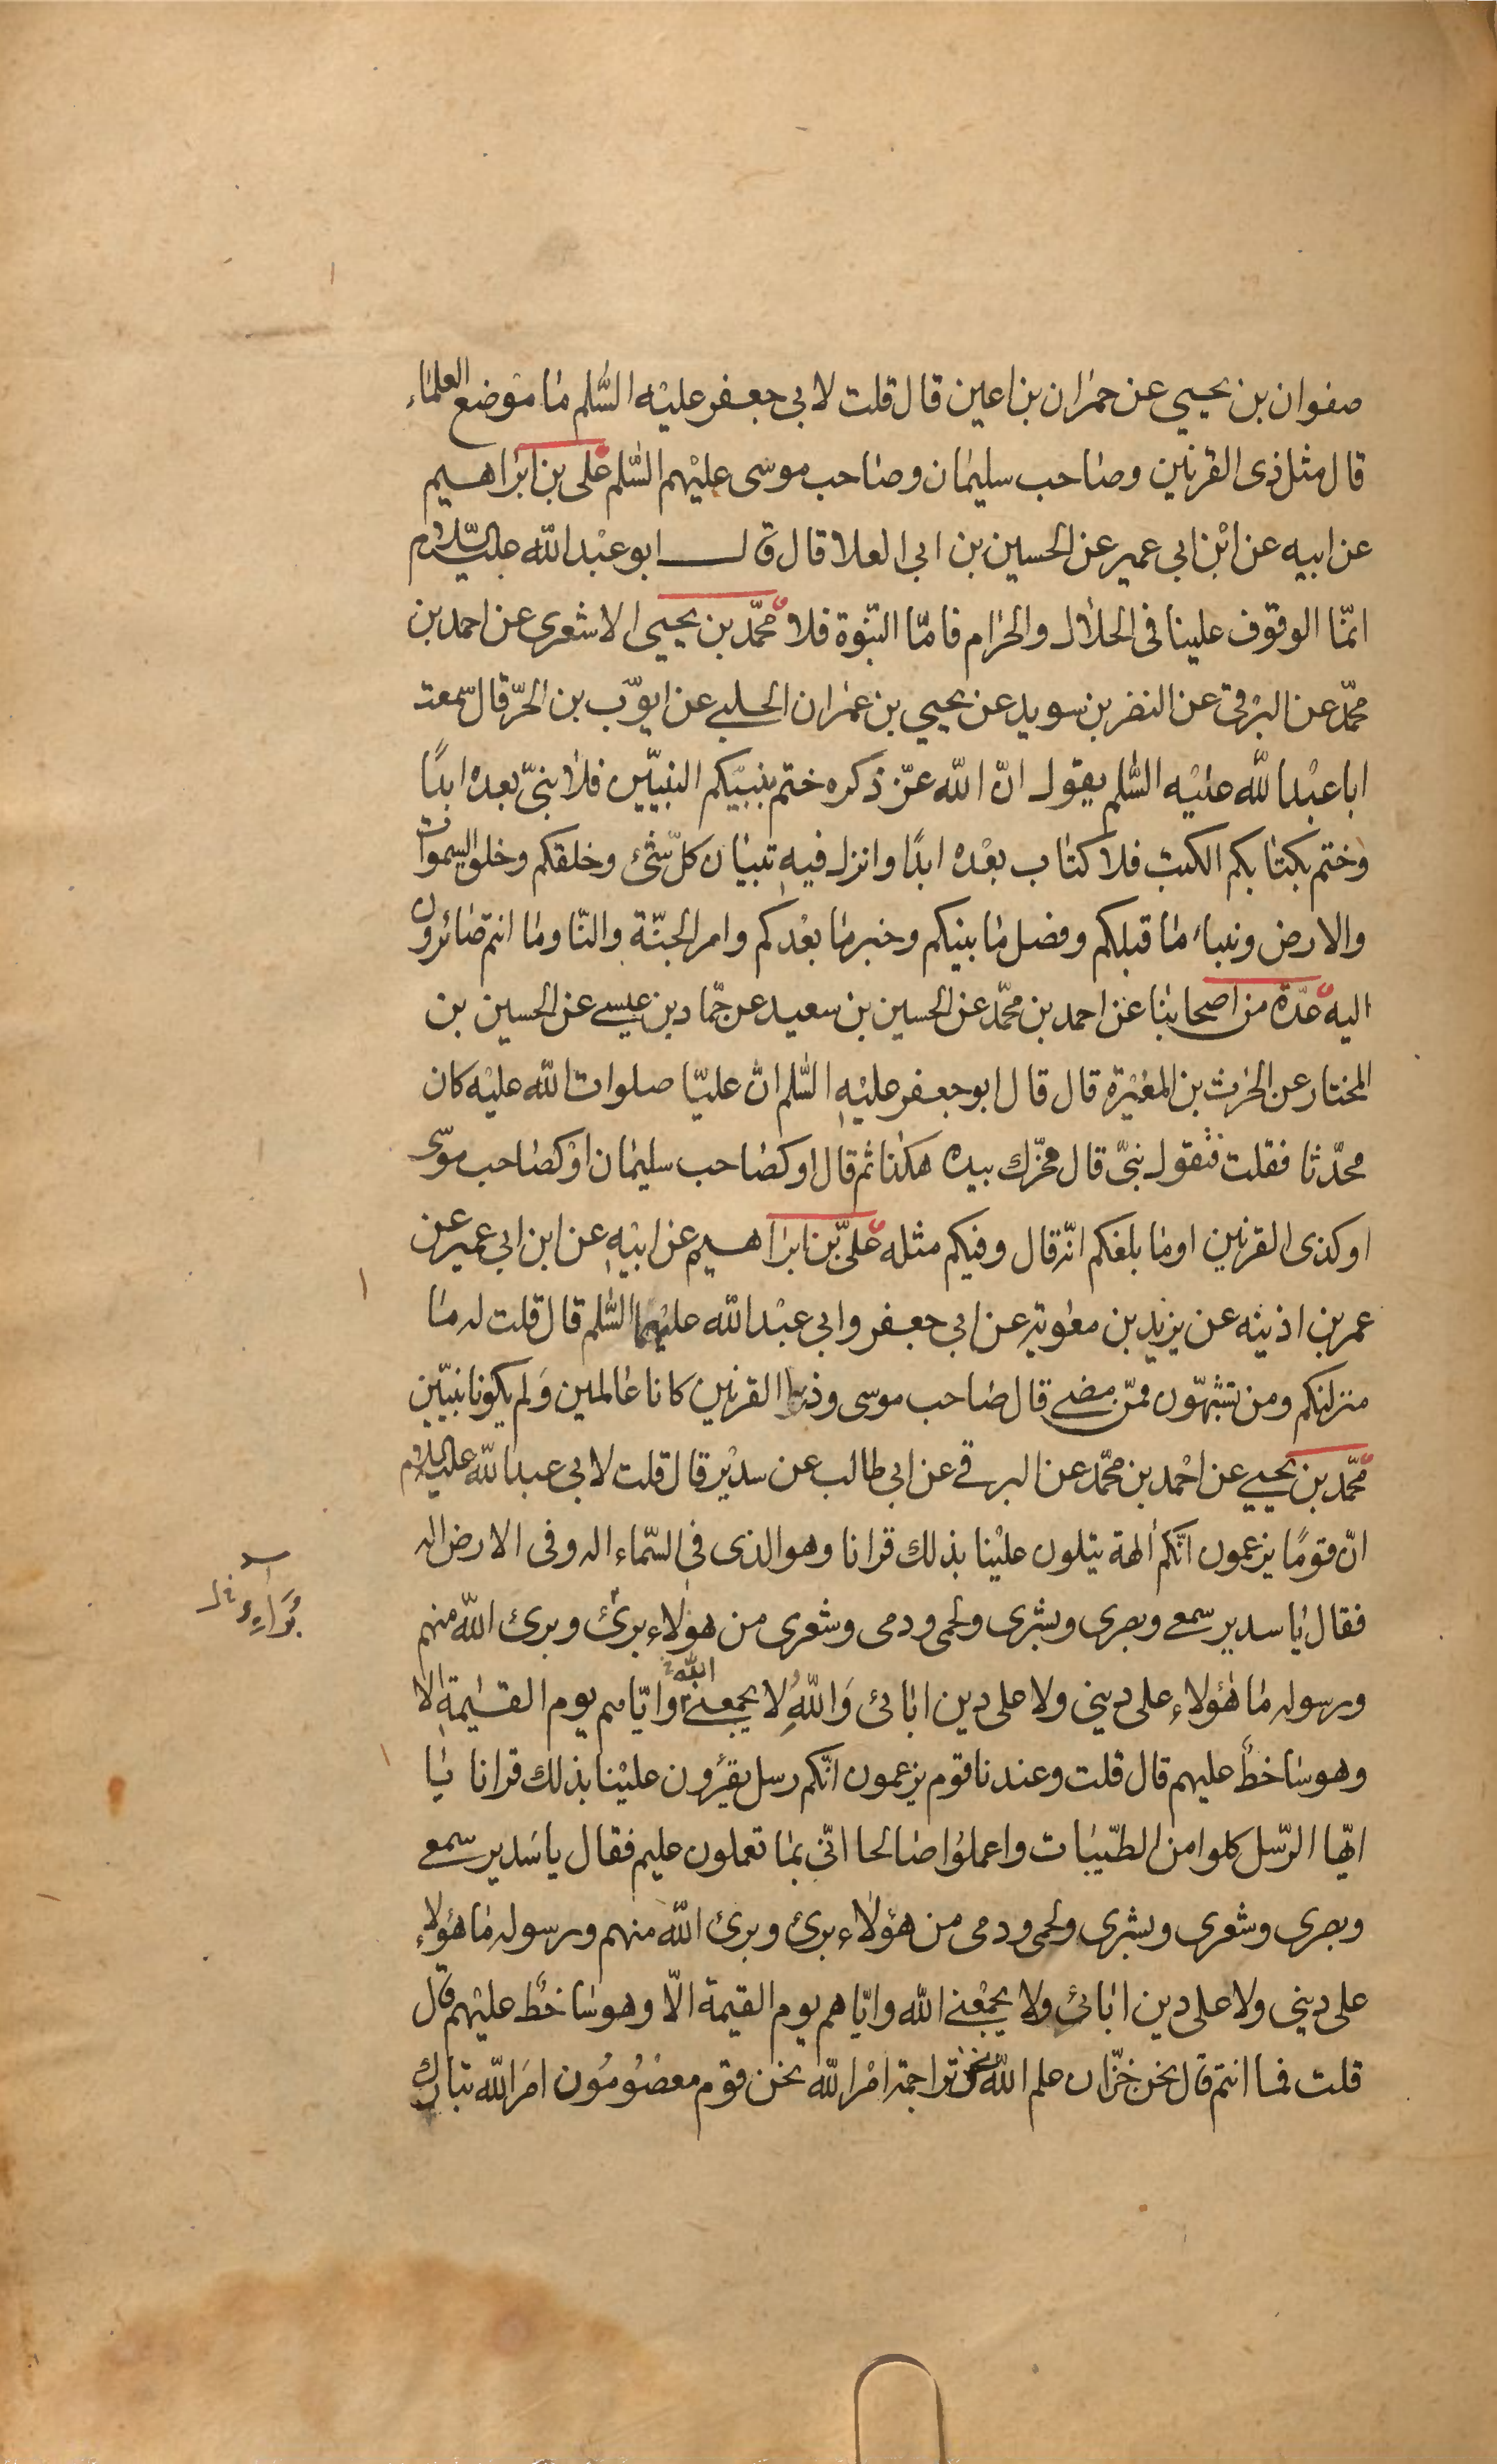 صفوان بن يحيى عن حمران بن اعين قال قلت لابى جعفر عليه السلم ما موضع العلماء
قال مثل ذى القرنين وصاحب سليمان وصاحب موسى عليهم السلم على بن ابراهيم
عن ابيه عن ابن ابى عمير عن الحسين بن ابى العلا قال قال ابو عبد الله عليه السلام
انما الوقوف علينا فى الحلال والحرام فاما النبوة فلا محمد بن يحيى الاشعرى عن احمد بن
محمد عن البرقى عن النضر بن سويد عن يحيى بن عمران الحلبى عن ايوب بن الحر قال سمعت
ابا عبد الله عليه السلم يقول ان الله عز ذكره ختم بنبيكم النبيين فلا نبى بعده ابدا
وختم بكتابكم الكتب فلا كتاب بعده ابدا وانزل فيه تبيان كل شئ وخلقكم وخلق السموات
والارض ونباء ما قبلكم وفصل ما بينكم وخبر ما بعدكم وامر الجنة والنا وما انتم صائرون
اليه عدة من اصحابنا عن احمد بن محمد عن الحسين بن سعيد عن حماد بن عيسى عن الحسين بن
المختار عن الحرث بن المغيرة قال قال ابو جعفر عليه السلم ان عليا صلوات الله عليه كان
محدثا فقلت فتقول نبى قال فحرك بيده هكذا ثم قال او كصاحب سليمان او كصاحب موسى
او كذى القرنين اوما بلغكم انه قال وفيكم مثله على بن ابراهيم عن ابيه عن ابن ابى عمير عن
عمر بن اذينه عن يزيد بن معوية عن ابى جعفر وابى عبد الله عليهما السلم قال قلت له ما
منزلتكم ومن تشبهون ممن مضى قال صاحب موسى وذو القرنين كانا عالمين ولم يكونا نبيين
محمد بن يحيى عن احمد بن محمد عن البرقى عن ابى طالب عن سدير قال قلت لابى عبد الله عليه السلام
ان قوما يزعمون انكم الهة يتلون علينا بذلك قرانا وهو الذى فى السماء اله وفى الارض اله
فقال يا سدير سمعى وبصرى وبشرى ولحمى ودمى وشعرى من هولاء برئ وبرئ الله منهم
ورسوله ما هؤلاء على دينى ولا على دين ابائى والله لا يجمعنى الله واياهم يوم القيمة الا
وهو ساخط عليهم قال قلت وعندنا قوم يزعمون انكم رسل يقرؤن علينا بذلك قرانا يا
ايها الرسل كلوا من الطيبات واعملوا صالحا انى بما تعملون عليم فقال يا سدير سمعى
وبصرى وشعرى وبشرى ولحمى ودمى من هؤلاء برئ وبرئ الله منهم ورسوله ما هؤلاء
على دينى ولا على دين ابائى ولا يجمعنى الله واياهم يوم القيمة الا وهو ساخط عليهم قال
قلت فما انتم قال نحن خزان علم الله نحن تراجمة امر الله نحن قوم معصومون امر الله تبارك